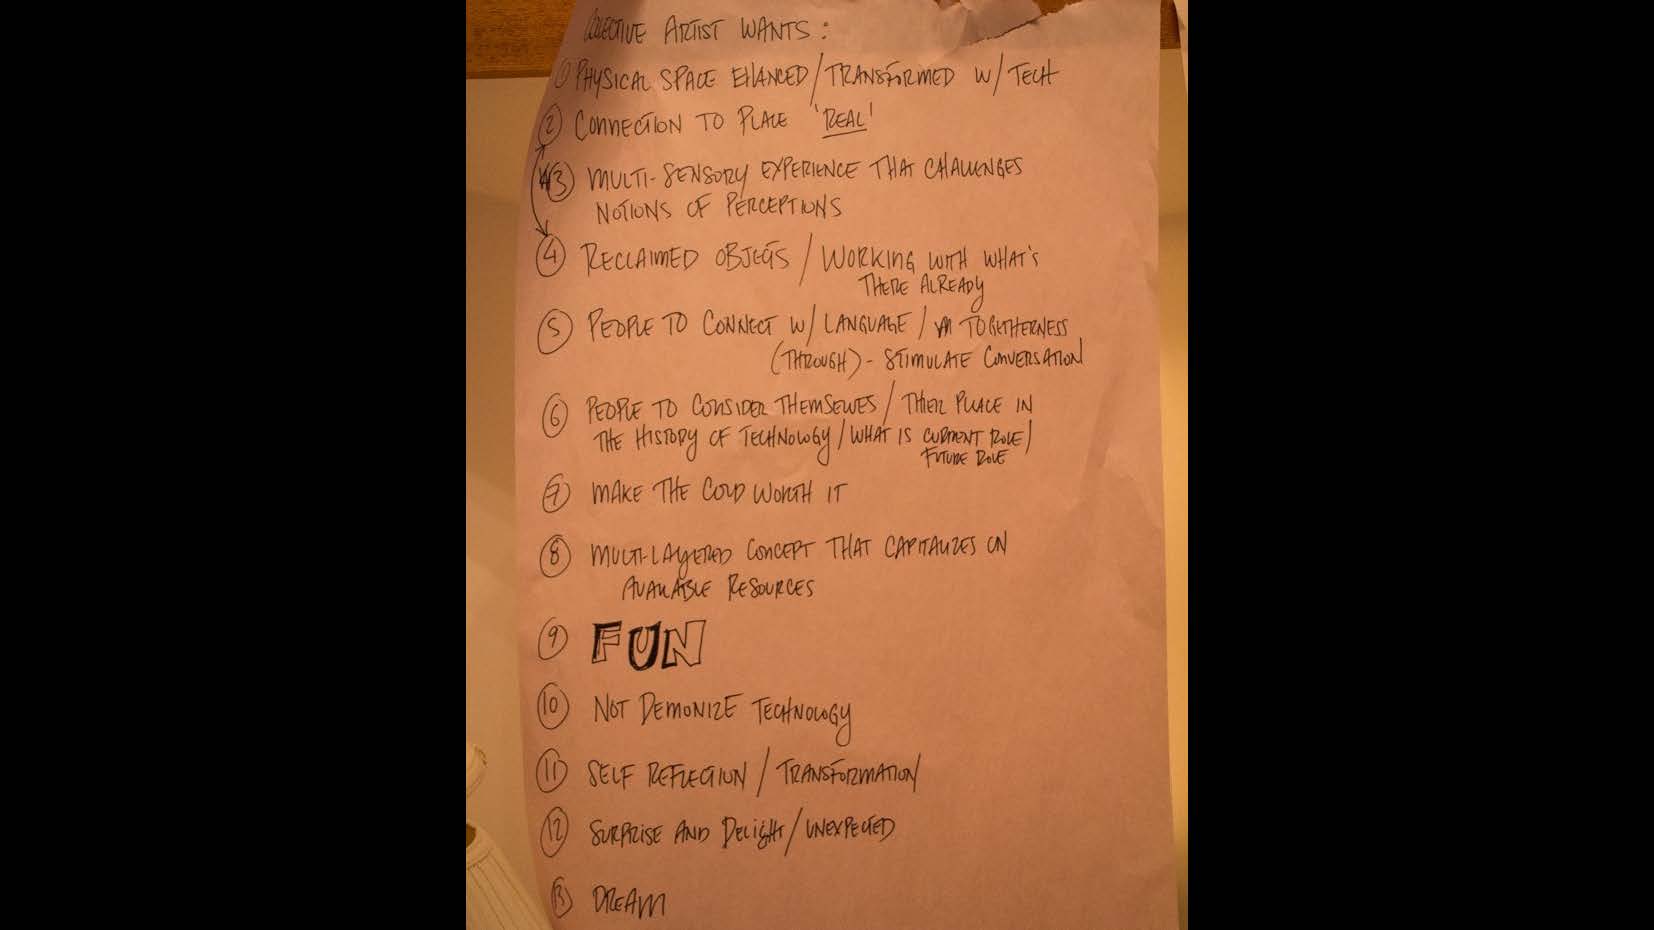 COLECTIVE ARTIST WANTS:
1 PHYSICAL SPACE EHANCED/TRANSFORMED W/TECH
2 CONNECTION TO PLACE 'REAL'
3 MULTI-SENSORY EXPERIENCE THAT CHALLENGES
NOTIONS OF PERCEPTIONS
4 RECLAIMED OBJECTS / WORKING WITH WHAT'S
THERE ALREADY
5 PEOPLE TO CONNECT W/ LANGUAGE / TOGETHERNESS
(THROUGH) - STIMULATE CONVERSATION
6 PEOPLE TO CONSIDER THEMSELVES / THIER PLACE IN
THE HISTORY OF TECHNOLOGY / WHAT IS CURRENT ROLE/
FUTURE ROLE
7 MAKE THE COLD WORTH IT
8 MULTI-LAYERED CONCEPT THAT CAPITALIZES ON
AVAILABLE RESOURCES
9 FUN
10 NOT DEMONIZE TECHNOLOGY
11 SELF REFLECTION / TRANSFORMATION
12 SURPRISE AND DELIGHT / UNEXPECTED
13 DREAM